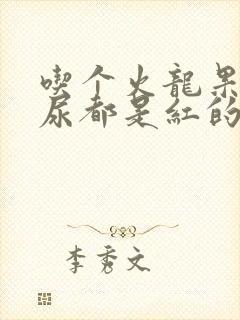 喫个火龍果
尿都是紅的
李秀文